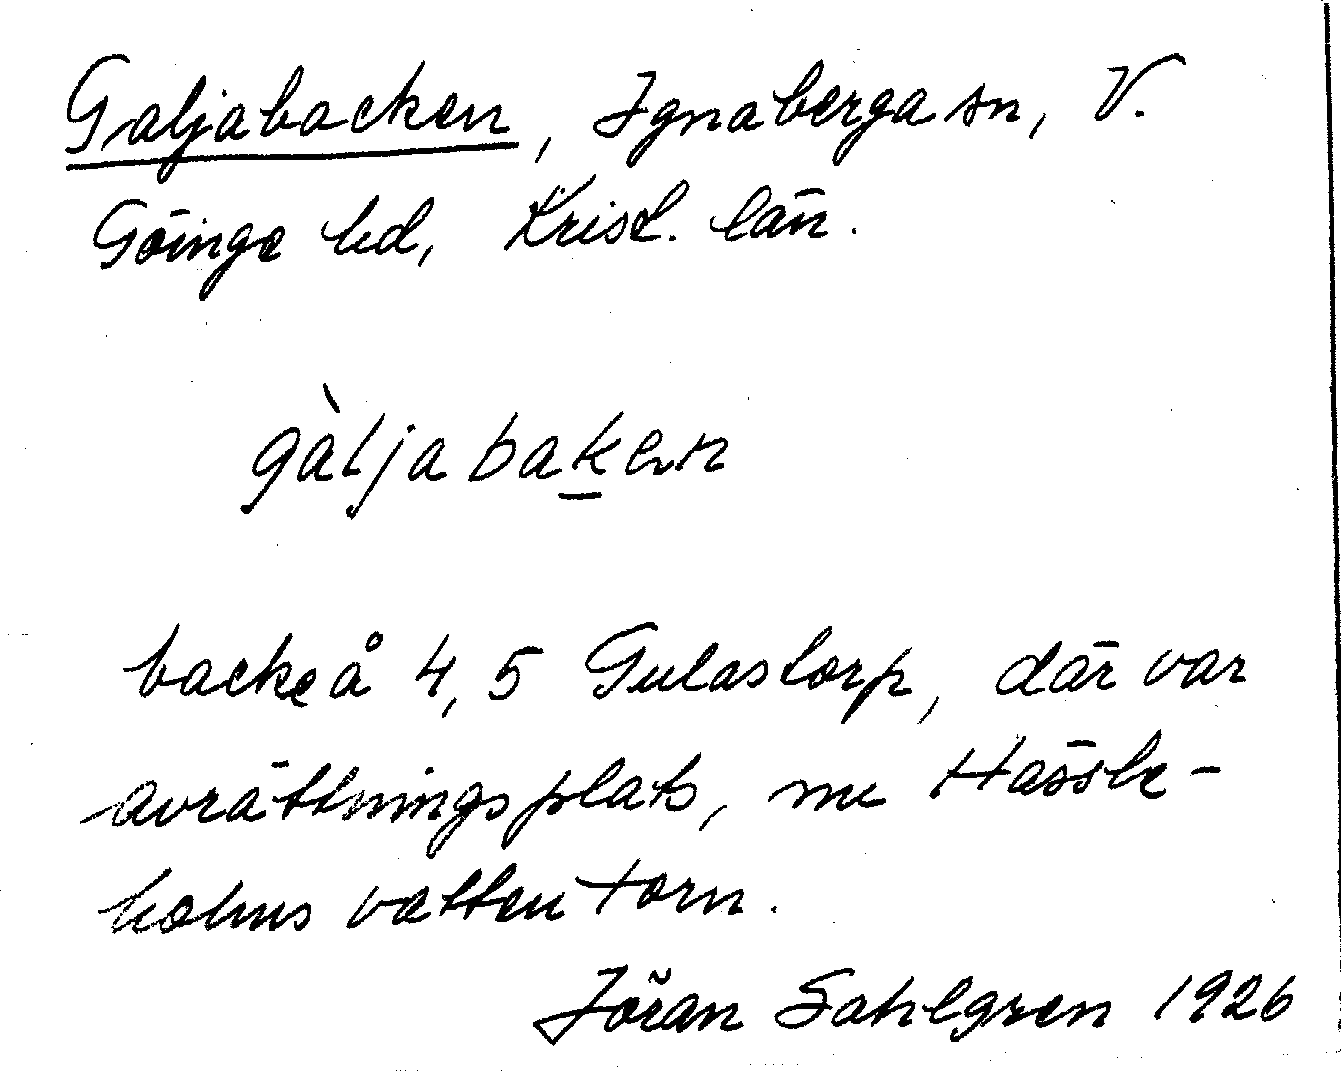 Galjabacken, Ignaberga sn, V.
Göinge hd, Krist. län.
gàljabaken
backe å 4,5 Gulastorp, där var
avrättningsplats, nu Hässle-
holms vattentorn.
Jöran Sahlgren 1926